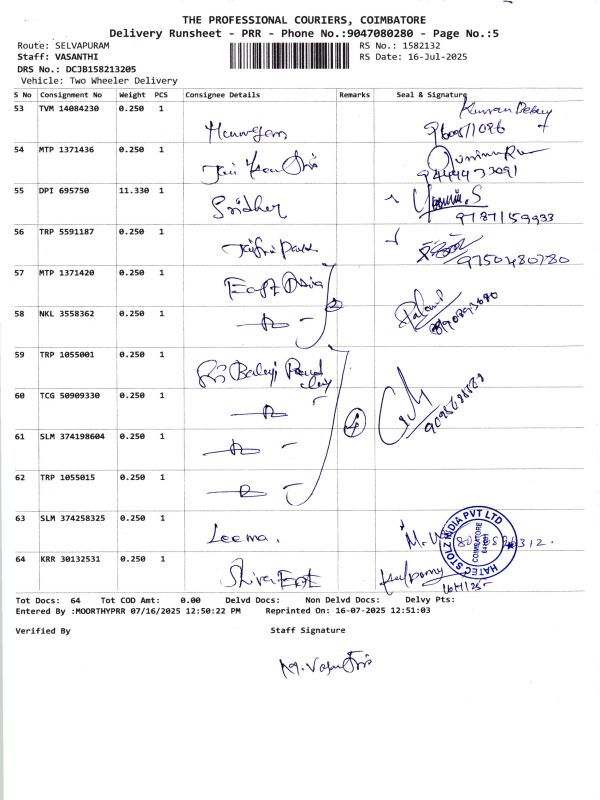 THE PROFESSIONAL COURIERS, COIMBATORE
Delivery Runsheet - PRR - Phone No.:9047080280 - Page No.:5
Route: SELVAPURAM RS No.: 1582132
Staff: VASANTHI RS Date: 16-Jul-2025
DRS No.: DCJB158213205
Vehicle: Two Wheeler Delivery
S No Consignment No Weight PCS Consignee Details Remarks Seal & Signature
53 TVM 14084230 0.250 1
54 MTP 1371436 0.250 1
55 DPI 695750 11.330 1 Sridher
9787159933
56 TRP 5591187 0.250 1
9750480780
57 MTP 1371420 0.250 1 East Asia
2
58 NKL 3558362 0.250 1
59 TRP 1055001 0.250 1 Sri Balaji
60 TCG 50909330 0.250 1
4
61 SLM 374198604 0.250 1
62 TRP 1055015 0.250 1
63 SLM 374258325 0.250 1 Leema.
HATEC STOLZ INDIA PVT LTD
COIMBATORE
64 KRR 30132531 0.250 1 Shiva
Tot Docs: 64 Tot COD Amt: 0.00 Delvd Docs: Non Delvd Docs: Delvy Pts:
Entered By :MOORTHYPRR 07/16/2025 12:50:22 PM Reprinted On: 16-07-2025 12:51:03
Verified By Staff Signature
M. Vasanthi